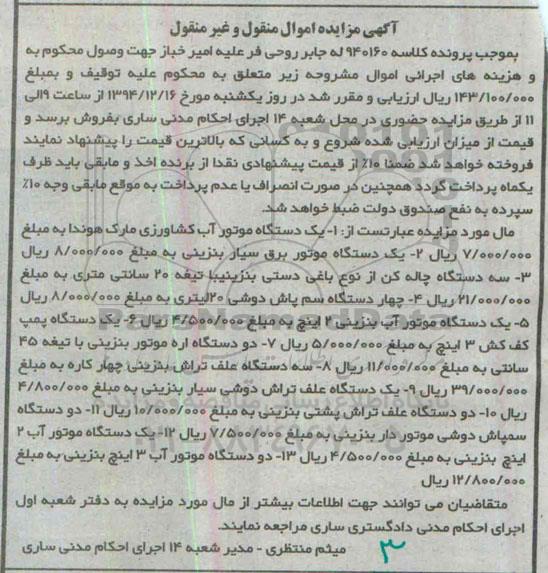 آگهی مزایده اموال منقول و غیر منقول
بموجب پرونده کلاسه ۹۴۰۱۶۰ له جابر روحی فر علیه امیر خباز جهت وصول محکوم به
و هزینه های اجرائی اموال مشروحه زیر متعلق به محکوم علیه توقیف و بمبلغ
۱۴۳/۱۰۰/۰۰۰ ریال ارزیابی و مقرر شد در روز یکشنبه مورخ ۱۳۹۴/۱۲/۱۶ از ساعت ۹الی
۱۱ از طریق مزایده حضوری در محل شعبه ۱۴ اجرای احکام مدنی ساری بفروش برسد و
قیمت از میزان ارزیابی شده شروع و به کسانی که بالاترین قیمت را پیشنهاد نمایند
فروخته خواهد شد ضمنا ۱۰٪ از قیمت پیشنهادی نقدا از برنده اخذ و مابقی باید ظرف
یکماه پرداخت گردد همچنین در صورت انصراف یا عدم پرداخت به موقع مابقی وجه ۱۰٪
سپرده به نفع صندوق دولت ضبط خواهد شد.
مال مورد مزایده عبارتست از: ۱- یک دستگاه موتور آب کشاورزی مارک هوندا به مبلغ
۷/۰۰۰/۰۰۰ ریال ۲- یک دستگاه موتور برق سیار بنزینی به مبلغ ۸/۰۰۰/۰۰۰ ریال
۳- سه دستگاه چاله کن از نوع باغی دستی بنزینیبا تیغه ۲۰ سانتی متری به مبلغ
۲۱/۰۰۰/۰۰۰ ریال ۴- چهار دستگاه سم پاش دوشی ۲۰لیتری به مبلغ ۸/۰۰۰/۰۰۰ ریال
۵- یک دستگاه موتور آب بنزینی ۲ اینچ به مبلغ ۴/۵۰۰/۰۰۰ ریال ۶- یک دستگاه پمپ
کف کش ۳ اینچ به مبلغ ۵/۰۰۰/۰۰۰ ریال ۷- دو دستگاه اره موتور بنزینی با تیغه ۴۵
سانتی به مبلغ ۱۱/۰۰۰/۰۰۰ ریال ۸- سه دستگاه علف تراش بنزینی چهار کاره به مبلغ
۳۹/۰۰۰/۰۰۰ ریال ۹- یک دستگاه علف تراش دوشی سیار بنزینی به مبلغ ۴/۸۰۰/۰۰۰
ریال ۱۰- دو دستگاه علف تراش پشتی بنزینی به مبلغ ۱۰/۰۰۰/۰۰۰ ریال ۱۱- دو دستگاه
سمپاش دوشی موتور دار بنزینی به مبلغ ۷/۵۰۰/۰۰۰ ریال ۱۲- یک دستگاه موتور آب ۲
اینچ بنزینی به مبلغ ۴/۵۰۰/۰۰۰ ریال ۱۳- دو دستگاه موتور آب ۳ اینچ بنزینی به مبلغ
۱۲/۸۰۰/۰۰۰ ریال
متقاضیان می توانند جهت اطلاعات بیشتر از مال مورد مزایده به دفتر شعبه اول
اجرای احکام مدنی دادگستری ساری مراجعه نمایند.
میثم منتظری - مدیر شعبه ۱۴ اجرای احکام مدنی ساری
۳
ParsNamadData